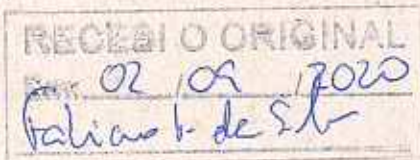 RECEBI O ORIGINAL
Em: 02 / 09 / 2020
Fabiano de S